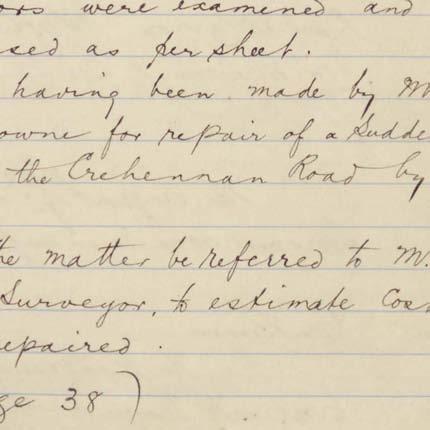 were examined and
sed as per sheet.
having been made by M
owne for repair of a Sudde
the Crehennan Road by
he matter be referred to M.
Surveyor, to estimate Cos
epaired.
ge 38)